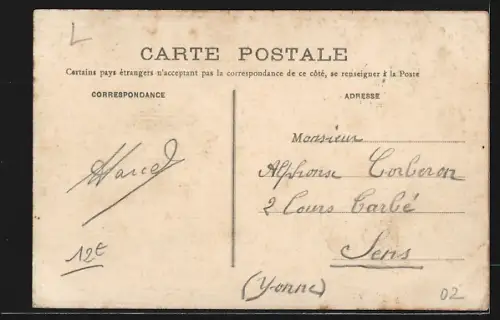 L
CARTE POSTALE
Certains pays étrangers n'acceptant pas la correspondance de ce côté, se renseigner à la Poste
CORRESPONDANCE
ADRESSE
Marcel
12t
Monsieur
Alphonse Corberon
2 Cours Tarbé
Sens
(Yonne)
02